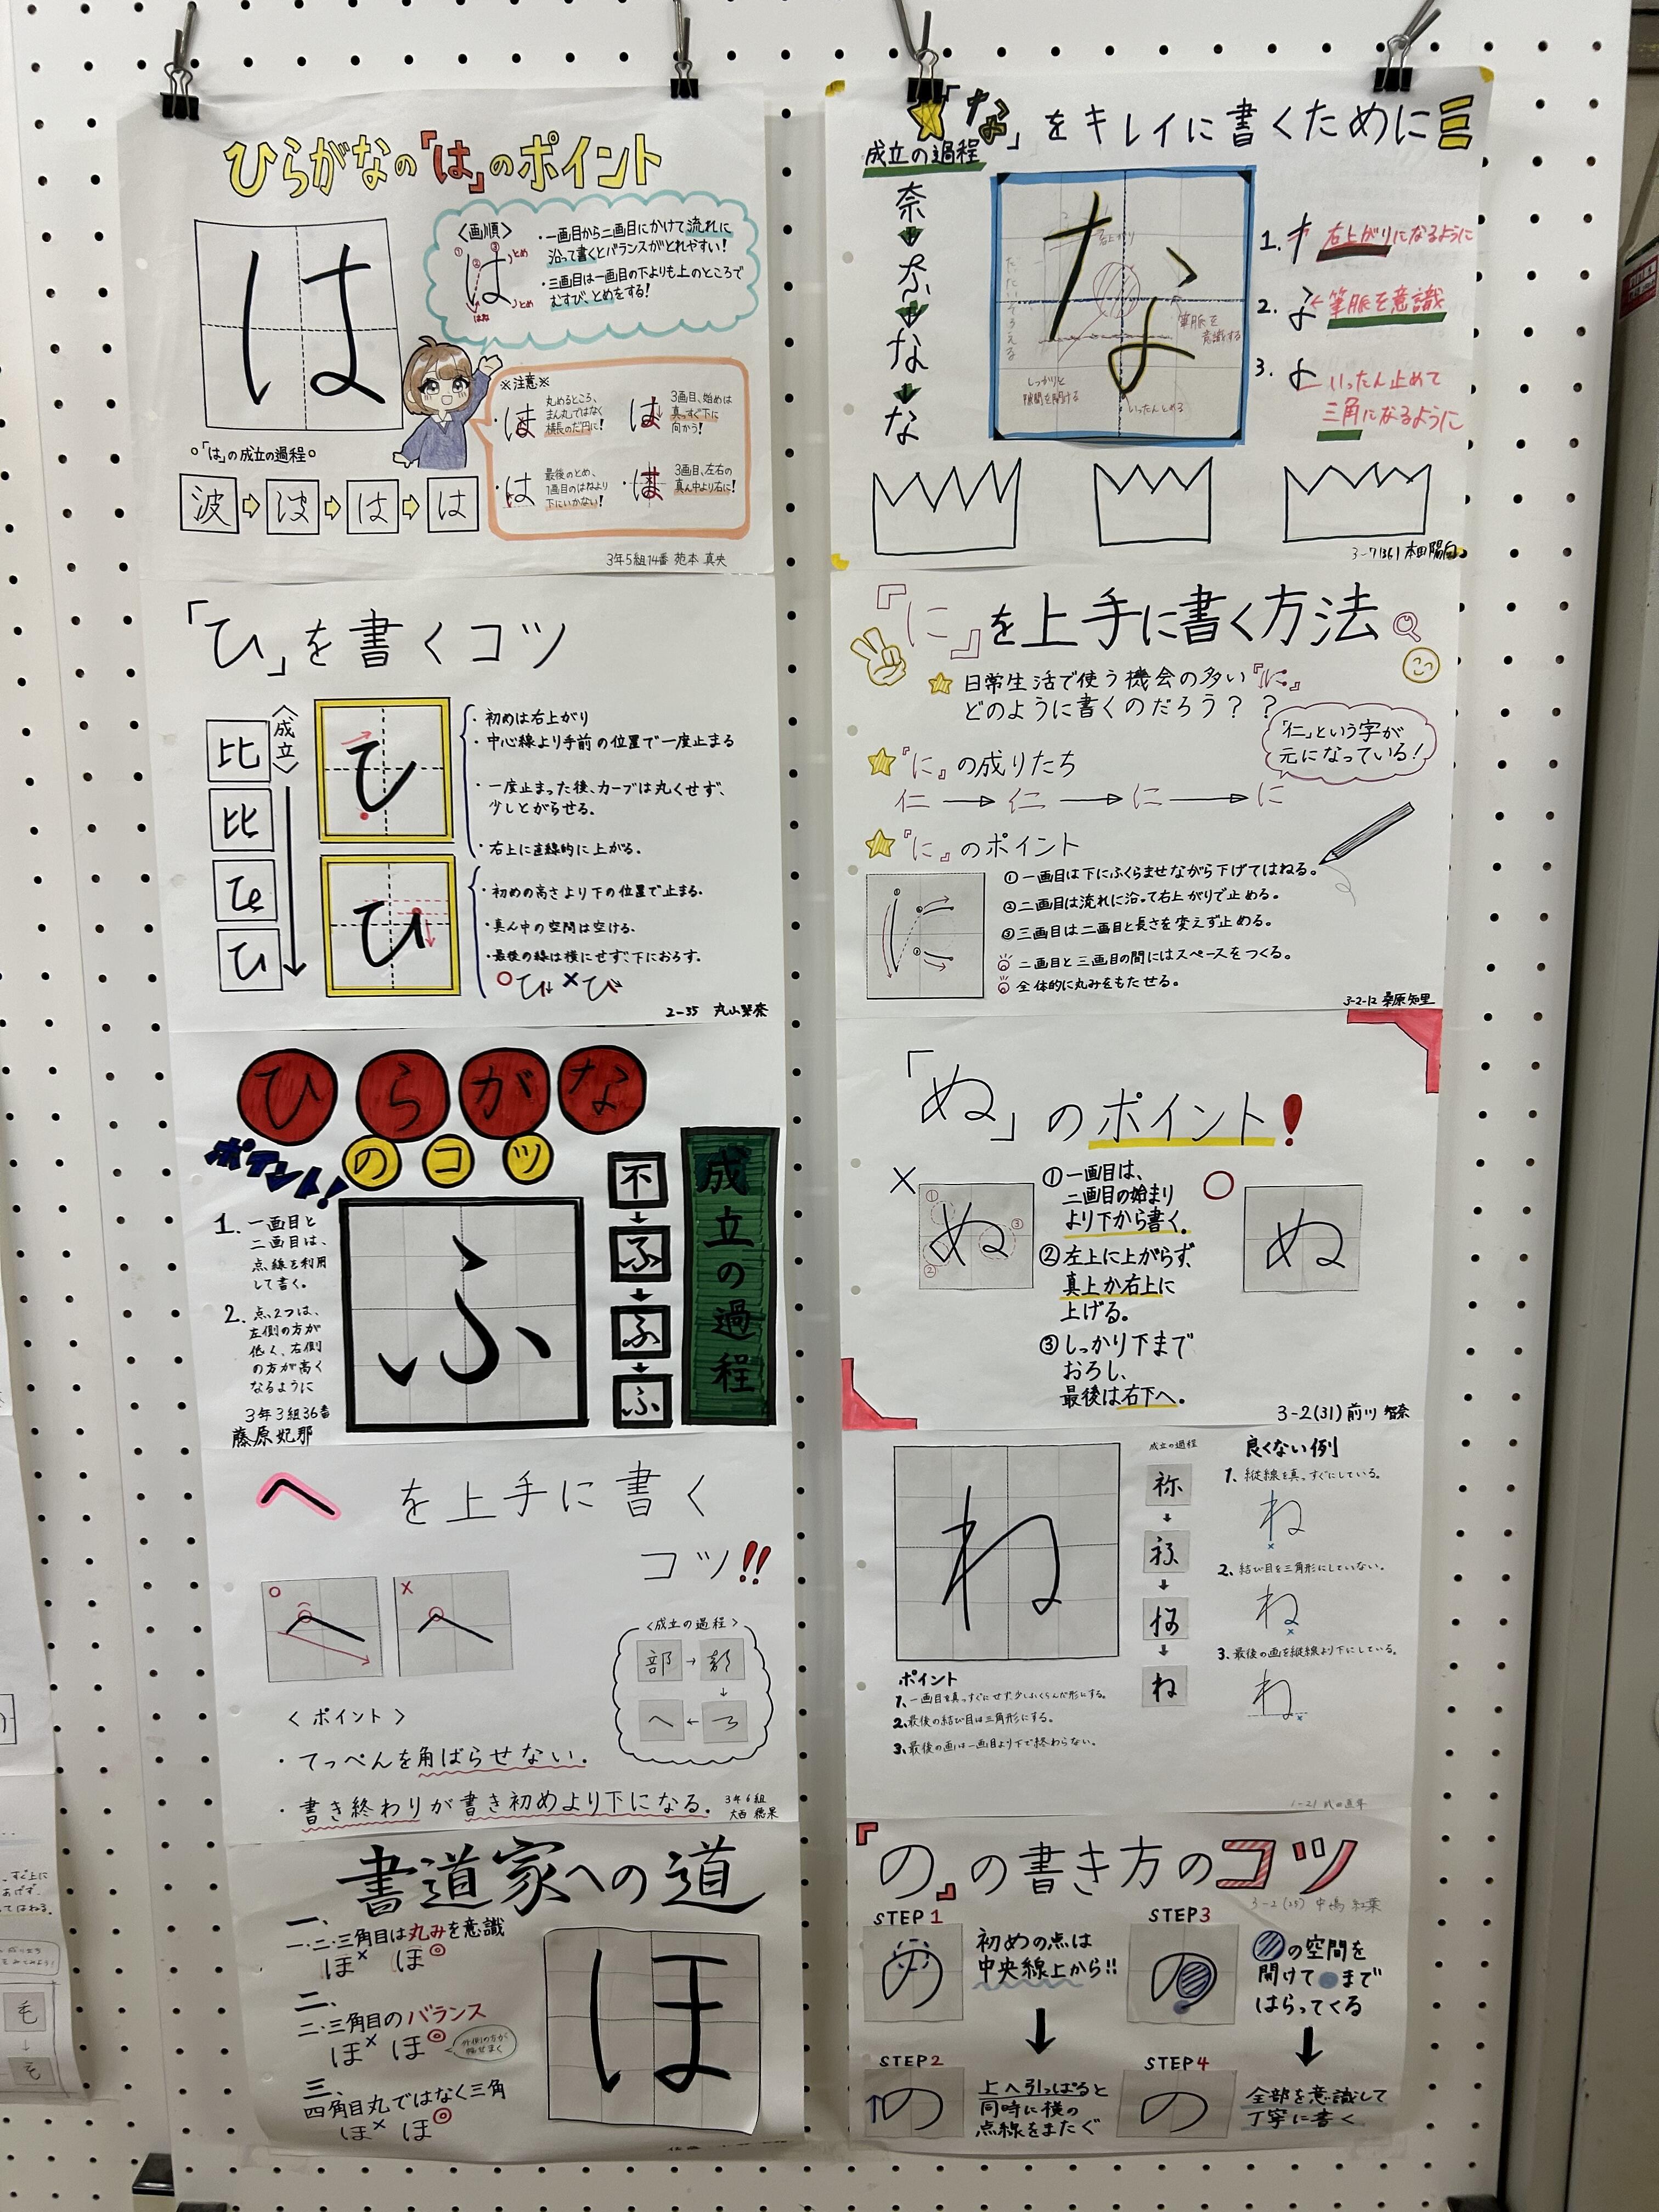 ひらがなの「は」のポイント
は
〈画順〉
① ② ③
は
とめ
とめ
はね
・一画目から二画目にかけて流れに
沿って書くとバランスがとれやすい!
・三画目は一画目の下よりも上のところで
むすび、とめをする!
※注意※
・は
丸めるところ、
まん丸ではなく
横長のだ円に!
は
3画目、始めは
真っすぐ下に
向かう!
・は
最後のとめ、
1画目のはねより
下にいかない!
・は
3画目、左右の
真ん中より右に!
○「は」の成立の過程○
波 は は は
3年5組14番 苑本 真央
「ひ」を書くコツ
〈成立〉
比
比
ひ
ひ
ひ
・初めは右上がり
・中心線より手前の位置で一度止まる
・一度止まった後、カーブは丸くせず、
少しとがらせる。
・右上に直線的に上がる。
ひ
・初めの高さより下の位置で止まる。
・真ん中の空間は空ける。
・最後の線は横にせず、下におろす。
○ひ ×ひ
2-35 丸山琴奈
ひらがな
のコツ
ポイント!
1. 一画目と
二画目は、
点線を利用
して書く。
2. 点2つは、
左側の方が
低く、右側
の方が高く
なるように
3年3組36番
藤原妃那
ふ
不
ふ
ふ
ふ
成立の過程
へ を上手に書く
コツ!!
○ へ
× へ
〈成立の過程〉
部→
へ←
〈 ポイント 〉
・てっぺんを角ばらせない.
・書き終わりが書き初めより下になる.
3年6組
大西 穂果
書道家への道
一、
一・二・三角目は丸みを意識
ほ× ほ◎
二、
二・三角目のバランス
ほ× ほ◎
三、
四角目丸ではなく三角
ほ× ほ◎
ほ
「な」をキレイに書くために
成立の過程
奈
な
な
な
な
右上がり
筆脈を
意識する
しっかりと
隙間を開ける
いったんとめる
1. 右上がりになるように
2. ←筆脈を意識
3. いったん止めて
三角になるように
3-7(36)本田陽向
『に』を上手に書く方法
日常生活で使う機会の多い『に』
どのように書くのだろう??
「仁」という字が
元になっている!
『に』の成りたち
仁 → 仁 → に → に
『に』のポイント
①一画目は下にふくらませながら下げてはねる。
②二画目は流れに沿って右上がりで止める。
③三画目は二画目と長さを変えず止める。
二画目と三画目の間にはスペースをつくる。
全体的に丸みをもたせる。
3-2-12 桑原知里
「ぬ」のポイント!
× ぬ
① ② ③
○ ぬ
①一画目は、
二画目の始まり
より下から書く。
②左上に上がらず、
真上か右上に
上げる。
③しっかり下まで
おろし、
最後は右下へ。
3-2(31)前川 智奈
ね
成立の過程
祢
ね
良くない例
1、縦線を真っすぐにしている。
ね
2、結び目を三角形にしていない。
ね
3、最後の画を縦線より下にしている。
ね
ポイント
1、一画目を真っすぐにせず、少しふくらんだ形にする。
2、最後の結び目は三角形にする。
3、最後の画は一画目より下で終わらない。
『の』の書き方のコツ
3-2(25) 中嶋 紅葉
STEP1
の
初めの点は
中央線上から!!
STEP2
↑の
上へ引っぱると
同時に横の
点線をまたぐ
STEP3
の
の空間を
開けて●まで
はらってくる
STEP4
の
全部を意識して
丁寧に書く